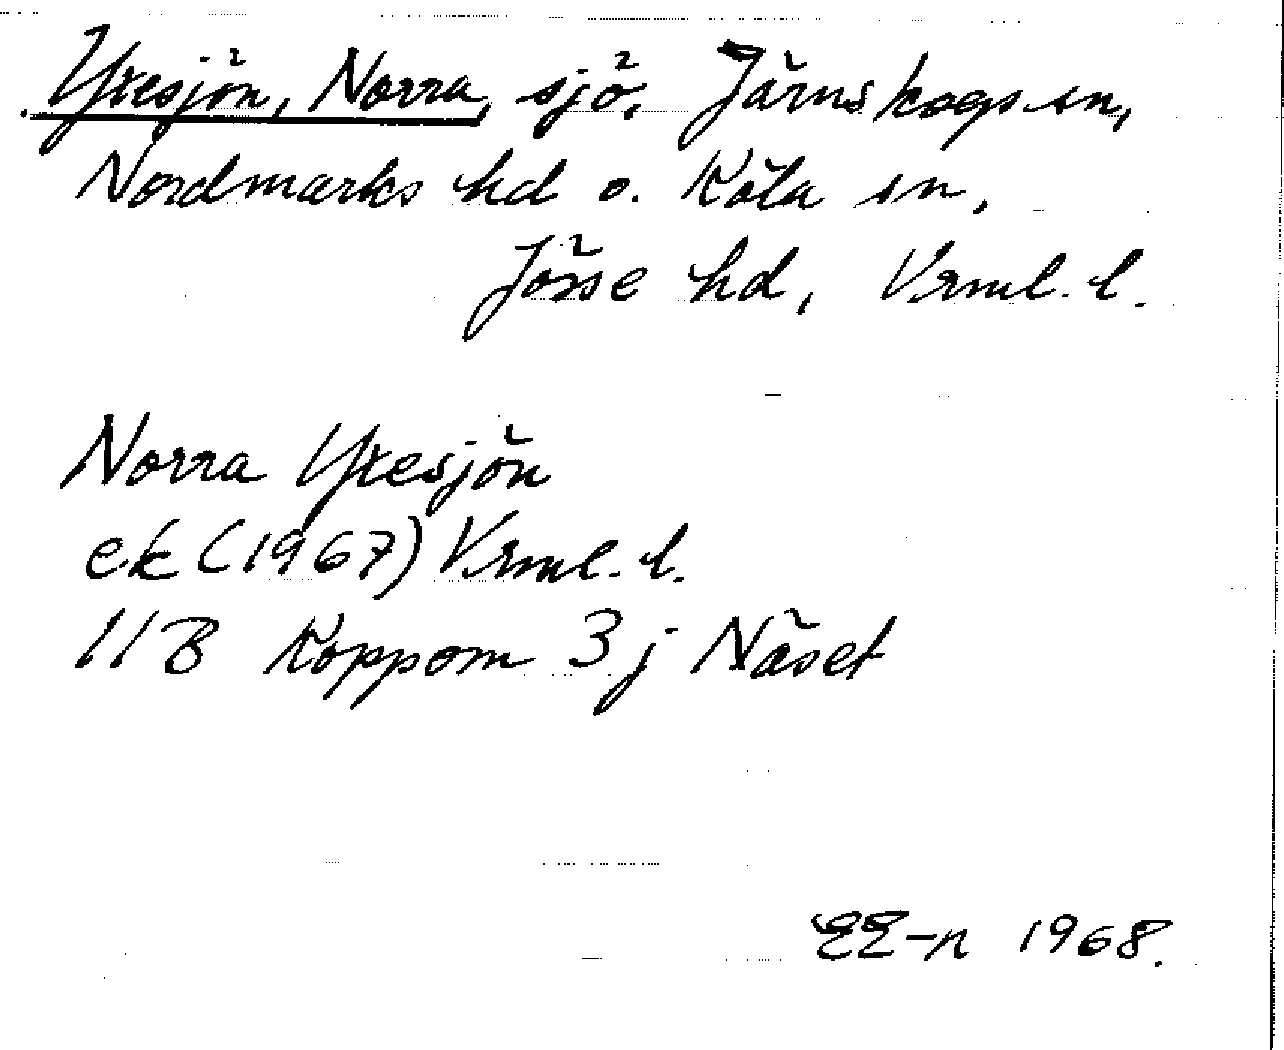 Yxesjön, Norra, sjö, Järnskogs sn,
Nordmarks hd o. Köla sn,
Jösse hd, Vrml. l.
Norra Yxesjön
ek (1967) Vrml. l.
11B Koppom 3 j Näset
EE-n 1968.